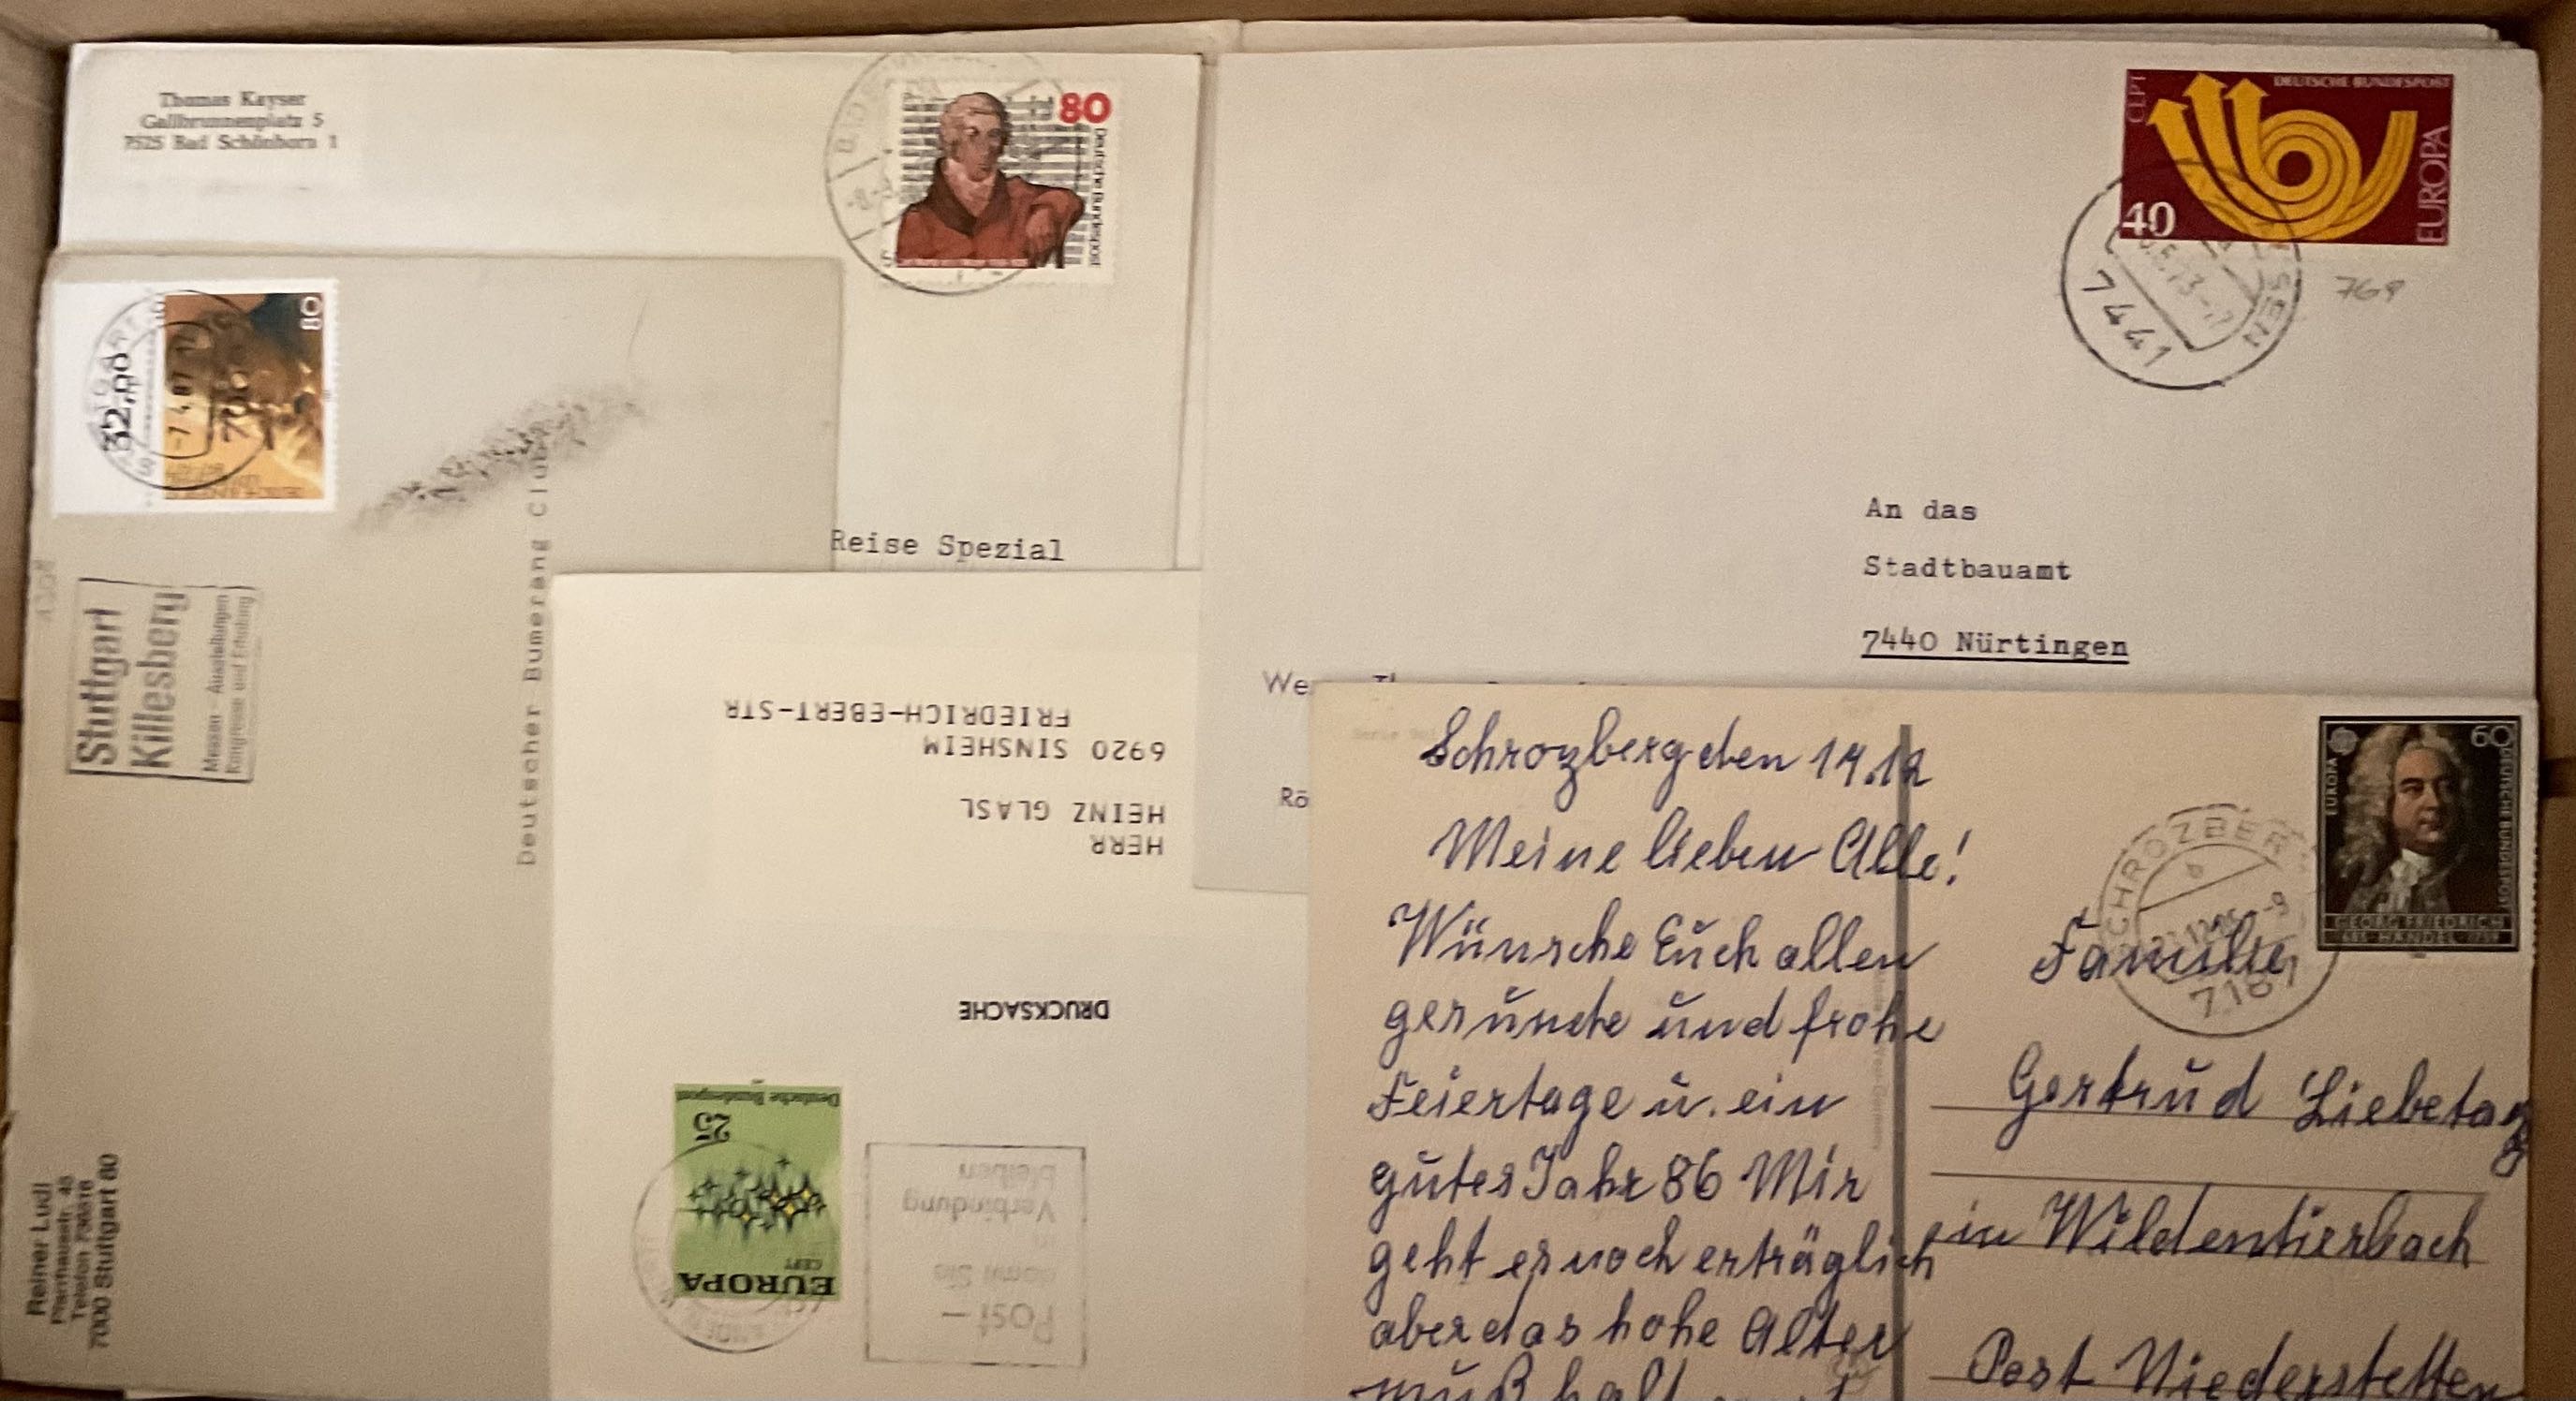 Thomas Kayser
Gallbrunnenplatz 5
7525 Bad Schönborn 1
80
Deutsche Bundespost
Reise Spezial
80
32
-7.4.87
Stuttgart
Killesberg
Messen - Ausstellungen
Kongresse und Erholung
Deutscher Bumerang Club
Reiner Ludl
Pfarrhausstr. 45
Telefon
7000 Stuttgart 80
DRUCKSACHE
HERR
HEINZ GLASL
6920 SINSHEIM
FRIEDRICH-EBERT-STR
EUROPA
CEPT
25
Deutsche Bundespost
Post -
damit Sie
in
Verbindung
bleiben
CEPT
DEUTSCHE BUNDESPOST
EUROPA
40
7441
769
An das
Stadtbauamt
7440 Nürtingen
We
Rö
Schrozberg den 19.12
Meine lieben Alle!
Wünsche Euch allen
gesunde und frohe
Feiertage u. ein
gutes Jahr 86 Mir
geht es noch erträglich
aber das hohe Alter
muß halt
60
EUROPA
DEUTSCHE BUNDESPOST
GEORG FRIEDRICH
HÄNDEL
SCHROZBERG
7187
Familie
Gertrud Liebetag
in Wildentierbach
Post Niederstetten